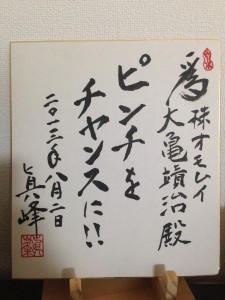 為
株オモレイ
大亀靖治殿
ピンチを
チャンスに!!
二〇一三年八月二日
眞峰